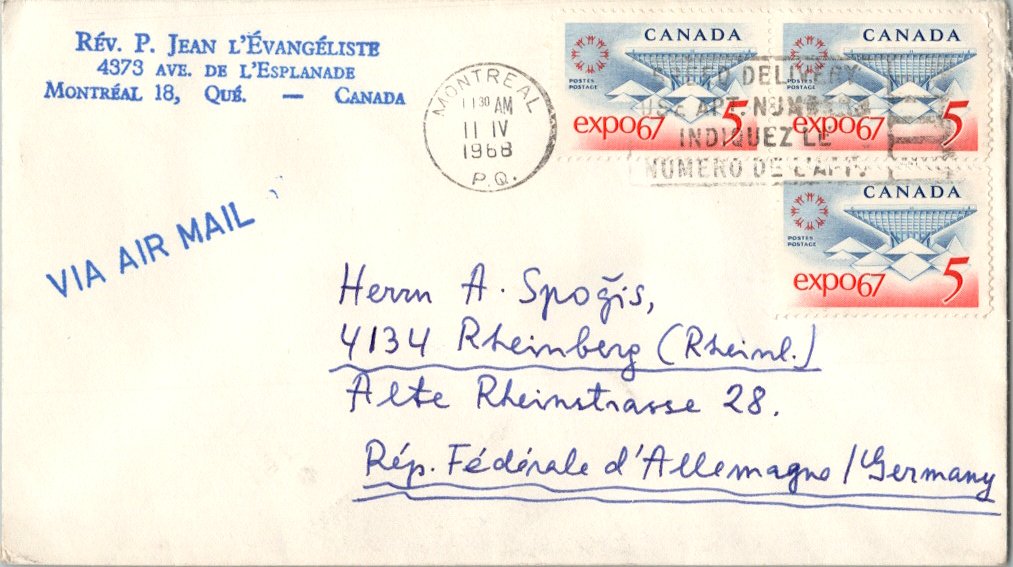 RÉV. P. JEAN L'ÉVANGÉLISTE
4373 AVE. DE L'ESPLANADE
MONTRÉAL 18, QUÉ. — CANADA
MONTREAL
11 30 AM
11 IV
1968
P.Q.
SPEED DELIVERY
USE APT. NUMBERS
INDIQUEZ LE
NUMERO DE L'APT.
CANADA
POSTES
POSTAGE
expo67 5
CANADA
POSTES
POSTAGE
expo67 5
CANADA
POSTES
POSTAGE
expo67 5
VIA AIR MAIL
Herrn A. Spoģis,
4134 Rheinberg (Rheinl.)
Alte Rheinstrasse 28.
Rép. Fédérale d'Allemagne / Germany